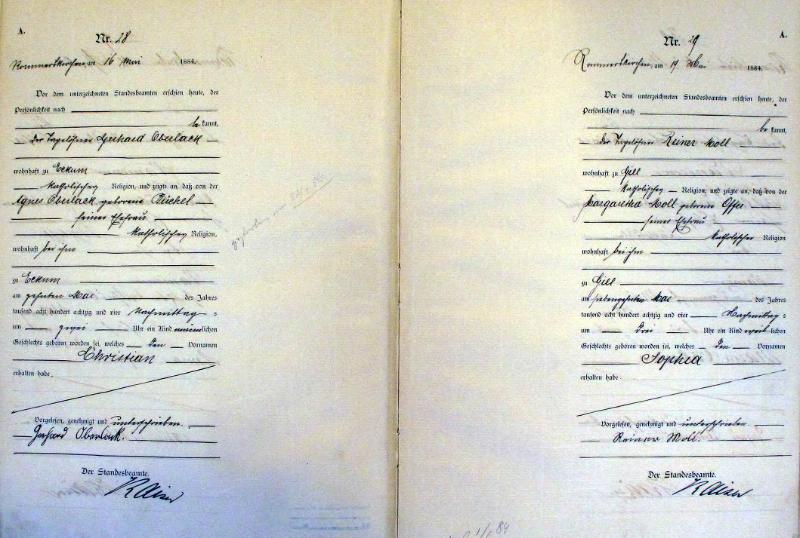 A.
Nr. 28
Rommerskirchen, am 16 Mai 1884.
Vor dem unterzeichneten Standesbeamten erschien heute, der
Persönlichkeit nach
be kannt,
der Tagelöhner Gerhard Oberlack
wohnhaft zu Eckum
katholischer Religion, und zeigte an, daß von der
Agnes Oberlack geborene
seiner Ehefrau
katholischer Religion,
wohnhaft bei ihm
zu Eckum
am zehnten Mai des Jahres
tausend acht hundert achtzig und vier Nachmittag=
um zwei Uhr ein Kind männlichen
Geschlechts geboren worden sei, welches den Vornamen
Christian
erhalten habe.
Vorgelesen, genehmigt und unterschrieben
Gerhard Oberlack.
Der Standesbeamte.
Kaiser
A.
Nr. 29
Rommerskirchen, am 19 Mai 1884.
Vor dem unterzeichneten Standesbeamten erschien heute, der
Persönlichkeit nach
be kannt,
der Tagelöhner Reiner Moll
wohnhaft zu Gill
katholischer Religion, und zeigte an, daß von der
Margaretha Moll geborene Offer
seiner Ehefrau
katholischer Religion
wohnhaft bei ihm
zu Gill
am siebenzehnten Mai des Jahres
tausend acht hundert achtzig und vier Nachmittag=
um drei Uhr ein Kind weib lichen
Geschlechts geboren worden sei, welches den Vornamen
Sophia
erhalten habe.
Vorgelesen, genehmigt und unterschrieben
Reiner Moll.
Der Standesbeamte.
Kaiser